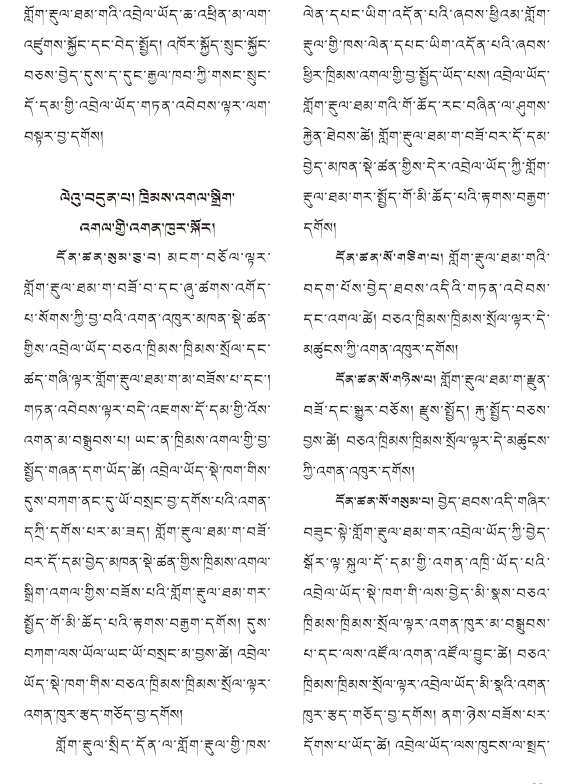 གློག་རྡུལ་ཐམ་གའི་འབྲེལ་ཡོད་ཆ་འཕྲིན་མ་ལག་
འཛུགས་སྐྱོང་དང་བེད་སྤྱོད། འཁོར་སྐྱོད་སྲུང་སྐྱོང་
བཅས་བྱེད་དུས་ད་དུང་རྒྱལ་ཁབ་ཀྱི་གསང་སྲུང་
དོ་དམ་གྱི་འབྲེལ་ཡོད་གཏན་འབེབས་ལྟར་ལག་
བསྟར་བྱ་དགོས།
ལེའུ་བདུན་པ། ཁྲིམས་འགལ་སྒྲིག་
འགལ་གྱི་འགན་ཁུར་སྐོར།
དོན་ཚན་སུམ་ཅུ་བ། མངག་བཅོལ་ལྟར་
གློག་རྡུལ་ཐམ་ག་བཟོ་བ་དང་ཞུ་ཚགས་འགོད་
པ་སོགས་ཀྱི་བྱ་བའི་འགན་འཁུར་མཁན་སྡེ་ཚན་
གྱིས་འབྲེལ་ཡོད་བཅའ་ཁྲིམས་ཁྲིམས་སྲོལ་དང་
ཚད་གཞི་ལྟར་གློག་རྡུལ་ཐམ་ག་མ་བཟོས་པ་དང་།
གཏན་འབེབས་ལྟར་བདེ་འཇགས་དོ་དམ་གྱི་འོས་
འགན་མ་བསྒྲུབས་པ། ཡང་ན་ཁྲིམས་འགལ་གྱི་བྱ་
སྤྱོད་གཞན་དག་ཡོད་ཚེ། འབྲེལ་ཡོད་སྡེ་ཁག་གིས་
དུས་བཀག་ནང་དུ་ཡོ་བསྲང་བྱ་དགོས་པའི་འགན་
དཀྲི་དགོས་པར་མ་ཟད། གློག་རྡུལ་ཐམ་ག་བཟོ་
བར་དོ་དམ་བྱེད་མཁན་སྡེ་ཚན་གྱིས་ཁྲིམས་འགལ་
སྒྲིག་འགལ་གྱིས་བཟོས་པའི་གློག་རྡུལ་ཐམ་གར་
སྤྱོད་གོ་མི་ཆོད་པའི་རྟགས་བརྒྱག་དགོས། དུས་
བཀག་ལས་ཡོལ་ཡང་ཡོ་བསྲང་མ་བྱས་ཚེ། འབྲེལ་
ཡོད་སྡེ་ཁག་གིས་བཅའ་ཁྲིམས་ཁྲིམས་སྲོལ་ལྟར་
འགན་ཁུར་རྩད་གཅོད་བྱ་དགོས།
གློག་རྡུལ་སྲིད་དོན་ལ་གློག་རྡུལ་གྱི་ཁས་
ལེན་དཔང་ཡིག་འདོན་པའི་ཞབས་ཕྱིའམ་གློག་
རྡུལ་གྱི་ཁས་ལེན་དཔང་ཡིག་འདོན་པའི་ཞབས་
ཕྱིར་ཁྲིམས་འགལ་གྱི་བྱ་སྤྱོད་ཡོད་པས། འབྲེལ་ཡོད་
གློག་རྡུལ་ཐམ་གའི་གོ་ཆོད་རང་བཞིན་ལ་ཤུགས་
རྐྱེན་ཐེབས་ཚེ། གློག་རྡུལ་ཐམ་ག་བཟོ་བར་དོ་དམ་
བྱེད་མཁན་སྡེ་ཚན་གྱིས་དེར་འབྲེལ་ཡོད་ཀྱི་གློག་
རྡུལ་ཐམ་གར་སྤྱོད་གོ་མི་ཆོད་པའི་རྟགས་བརྒྱག་
དགོས།
དོན་ཚན་སོ་གཅིག་པ། གློག་རྡུལ་ཐམ་གའི་
བདག་པོས་བྱེད་ཐབས་འདིའི་གཏན་འབེབས་
དང་འགལ་ཚེ། བཅའ་ཁྲིམས་ཁྲིམས་སྲོལ་ལྟར་དེ་
མཚུངས་ཀྱི་འགན་འཁུར་དགོས།
དོན་ཚན་སོ་གཉིས་པ། གློག་རྡུལ་ཐམ་ག་རྫུན་
བཟོ་དང་སྒྱུར་བཅོས། རྫུས་སྤྱོད། རྐུ་སྤྱོད་བཅས་
བྱས་ཚེ། བཅའ་ཁྲིམས་ཁྲིམས་སྲོལ་ལྟར་དེ་མཚུངས་
ཀྱི་འགན་འཁུར་དགོས།
དོན་ཚན་སོ་གསུམ་པ། བྱེད་ཐབས་འདི་གཞིར་
བཟུང་སྟེ་གློག་རྡུལ་ཐམ་གར་འབྲེལ་ཡོད་ཀྱི་བྱེད་
སྒོར་ལྟ་སྐུལ་དོ་དམ་གྱི་འགན་འཁྲི་ཡོད་པའི་
འབྲེལ་ཡོད་སྡེ་ཁག་གི་ལས་བྱེད་མི་སྣས་བཅའ་
ཁྲིམས་ཁྲིམས་སྲོལ་ལྟར་འགན་ཁུར་མ་བསྒྲུབས་
པ་དང་ལས་འཛོལ་འགན་འཛོལ་བྱུང་ཚེ། བཅའ་
ཁྲིམས་ཁྲིམས་སྲོལ་ལྟར་འབྲེལ་ཡོད་མི་སྣའི་འགན་
ཁུར་རྩད་གཅོད་བྱ་དགོས། ནག་ཉེས་བཟོས་པར་
དོགས་པ་ཡོད་ཚེ། འབྲེལ་ཡོད་ལས་ཁུངས་ལ་སྤྲད་